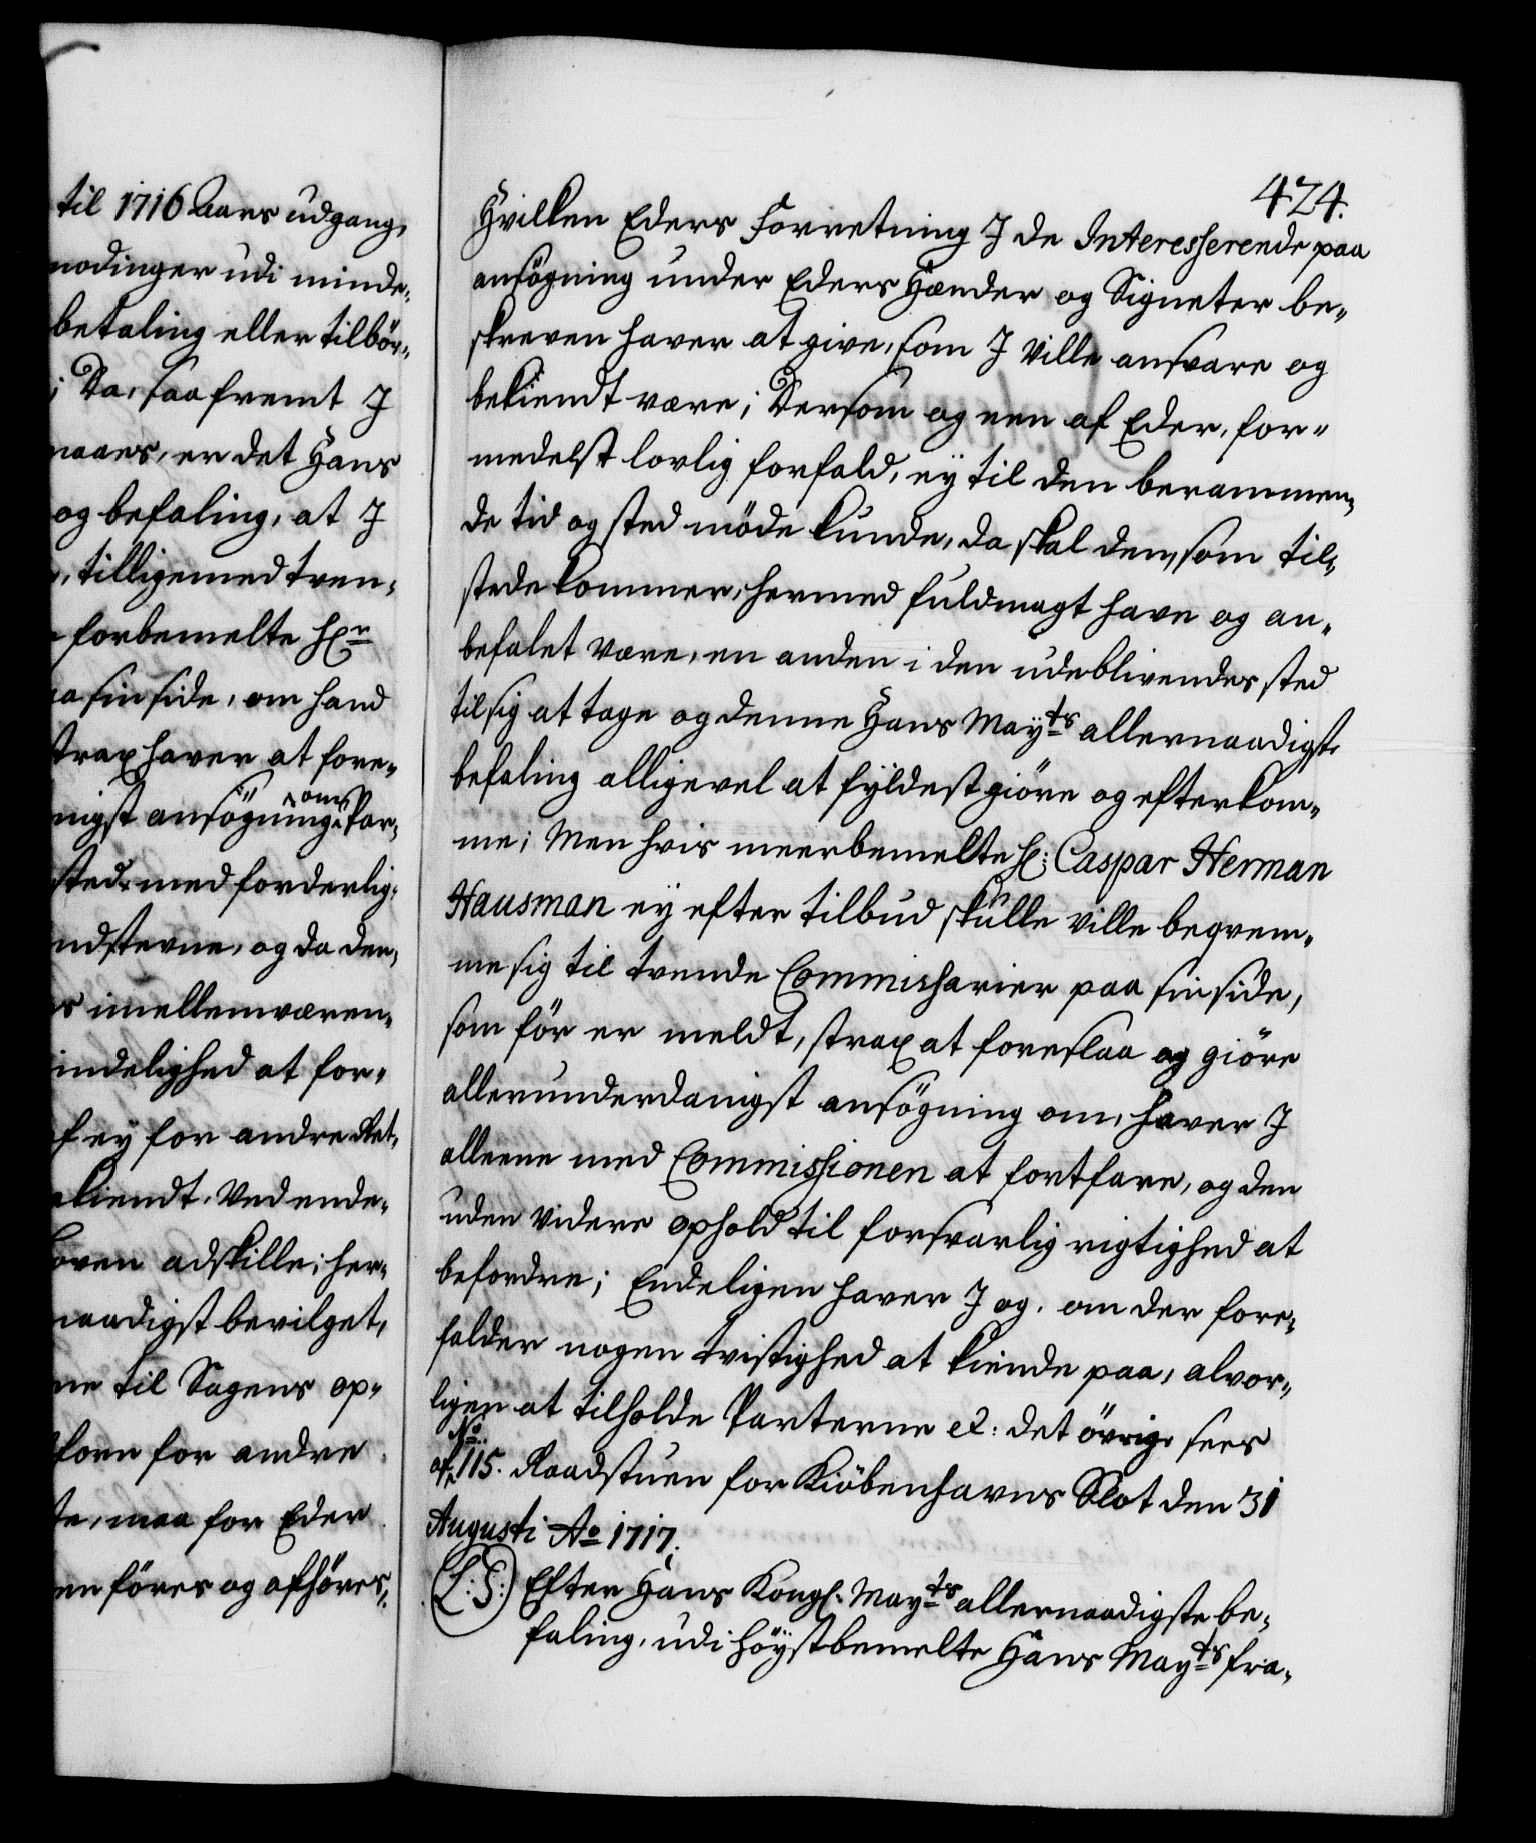 til 1716 Aars udgang,
modinger udi minde-
betaling eller tilbör-
; Da, saafremt I
naaes, er det Hans
og befaling, at I
, tilligemed tven-
forbemelte Hr
sin side, om hand
strax haver at fore-
nigst ansögning om, Par-
sted, med forderlig-
ndstevne, og da den,
s imellemværen-
indelighed at for-
ey for andre Ret-
kiendt. Ved ende-
oven adskille; her-
naadigst bevilget,
ne til Sagens op-
for andre
te, maa for Eder
en föres og afhöres,
424.
Hvilken Eders Forretning I de Interesserende paa
ansögning under Eders Hænder og Signeter be-
skreven haver at give, som I ville ansvare og
bekiendt være; Dersom og een af Eder, for-
medelst lovlig forfald, ey til den berammen-
de tid og sted möde kunde, da skal den, som til-
stede kommer, hermed fuldmagt have og an-
befalet være, en anden i den udeblivendes sted
til sig at tage og denne Hans Mayts allernaadigste
befaling alligevel at fyldestgiöre og efterkom-
me; Men hvis meerbemelte H: Caspar Herman
Hausman ey efter tilbud skulle ville beqvem-
me sig til tvende Commissarier paa sin side,
som för er meldt, strax at foreslaa og giöre
allerunderdanigst ansögning om, haver I
alleene med Commissionen at fortfare, og den
uden videre ophold til forsvarlig rigtighed at
befordre; Endeligen haver I og, om der fore-
falder nogen tvistighed at kiende paa, alvor-
ligen at tilholde Parterne etc: det övrige sees
af No 115. Raadstuen for Kiöbenhavns Slot den 31
Augusti Ao 1717.
(L: S:) Efter Hans Kongl. Mayts allernaadigste be-
faling, udi höystbemelte Hans Mayts fra-